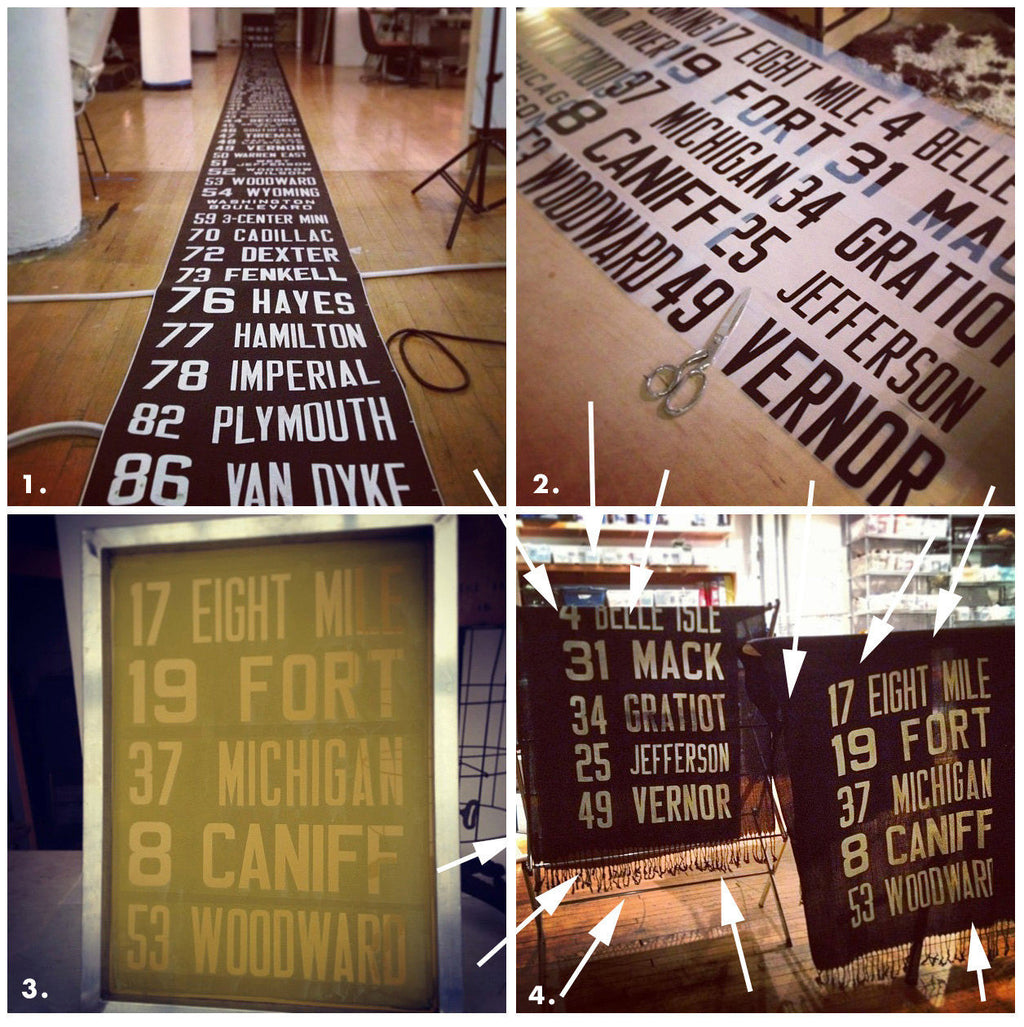 46 SOUTHFIELD
47 TIREMAN
49 VERNOR
50 WARREN EAST
51
JEFFERSON
52 WOODROW
WILSON
53 WOODWARD
54 WYOMING
WASHINGTON
BOULEVARD
59 3-CENTER MINI
70 CADILLAC
72 DEXTER
73 FENKELL
76 HAYES
77 HAMILTON
78 IMPERIAL
82 PLYMOUTH
86 VAN DYKE
1.
OMING 17 EIGHT MILE 4 BELL
RIVER 19 FORT 31 MAC
37 MICHIGAN 34 GRATIOT
CHICAG 8 CANIFF 25 JEFFERSON
53 WOODWARD 49 VERNOR
2.
17 EIGHT MILE
19 FORT
37 MICHIGAN
8 CANIFF
53 WOODWARD
3.
4 BELLE ISLE
31 MACK
34 GRATIOT
25 JEFFERSON
49 VERNOR
17 EIGHT MILE
19 FORT
37 MICHIGAN
8 CANIFF
53 WOODWARD
4.